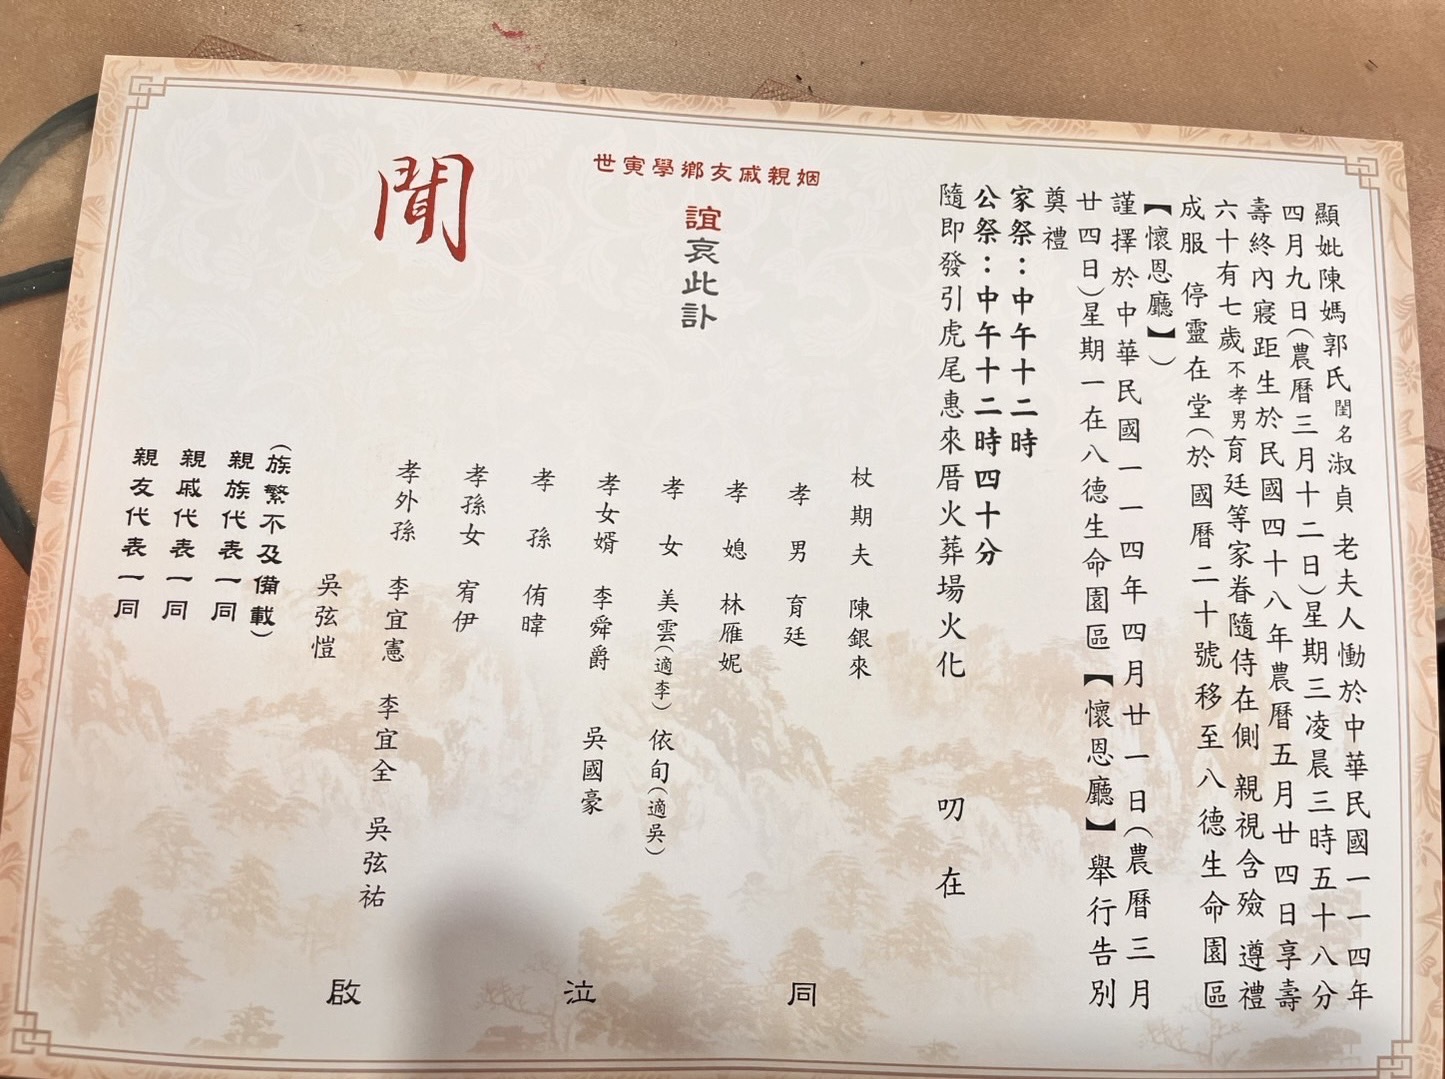 顯妣陳媽郭氏閨名淑貞 老夫人慟於中華民國一一四年
四月九日(農曆三月十二日)星期三凌晨三時五十八分
壽終內寢距生於民國四十八年農曆五月廿四日享壽
六十有七歲不孝男育廷等家眷隨侍在側 親視含殮 遵禮
成服 停靈在堂(於國曆二十號移至八德生命園區
【懷恩廳】)
謹擇於中華民國一一四年四月廿一日(農曆三月
廿四日)星期一在八德生命園區【懷恩廳】舉行告別
奠禮
家祭:中午十二時
公祭:中午十二時四十分
隨即發引虎尾惠來厝火葬場火化 叨在
姻親戚友鄉學寅世
誼哀此訃
聞
杖期夫 陳銀來
孝男 育廷
孝媳 林雁妮
孝女 美雲(適李) 依旬(適吳)
孝女婿 李舜爵 吳國豪
孝孫 侑暐
孝孫女 宥伊
孝外孫 李宜憲 李宜全 吳弦祐
吳弦愷
同泣啟
(族繁不及備載)
親族代表一同
親戚代表一同
親友代表一同